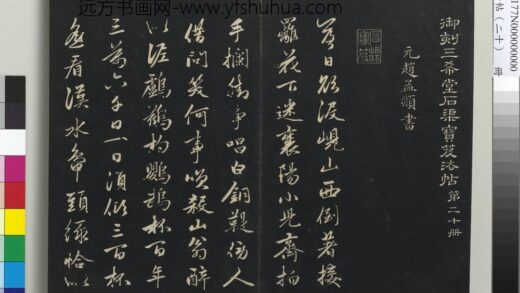 远方书画网 - www.yfshuhua.com
御刻三希堂石渠寶笈法帖 第二十冊
元趙孟頫書
落日欲沒峴山西倒著接
䍦花下迷襄陽小兒齊拍
手攔街爭唱白銅鞮傍人
借問笑何事笑殺山翁醉
似泥鸕鶿杓鸚鵡杯百年
三萬六千日一日須傾三百杯
遙看漢水鴨頭綠恰似
帖(二十) 册